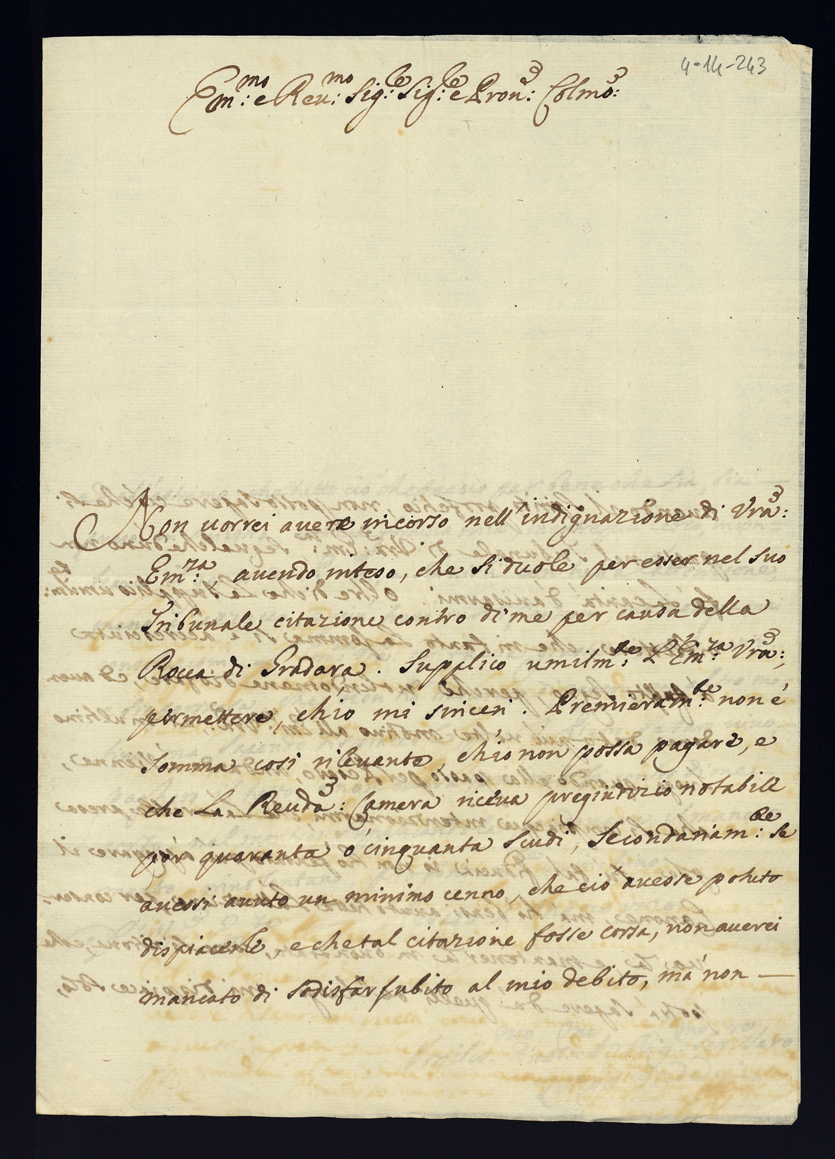 4-14-243
Em:mo e Reu:mo Sig:re Sig:re e Pron:e Colmo:
Non uorrei auere incorso nell'indignazione di Vra:
Em:za auendo inteso, che si duole per esser nel suo
Tribunale citazione contro di me per causa della
Rocca di Gradara. Supplico umilm:te L'Em:za Vra:,
permettere, ch'io mi sinceri. Premieram:te non è
somma così rileuante, ch'io non possa pagare, e
che La Reuda: Camera riceua pregiudizio notabile
per quaranta ó cinquanta scudi, Secondariam:te se
auessi auuto un minimo cenno, che ciò auesse potuto
dispiacerle, e che tal citazione fosse corsa, non auerei
mancato di sodisfar subito al mio debito, má non —